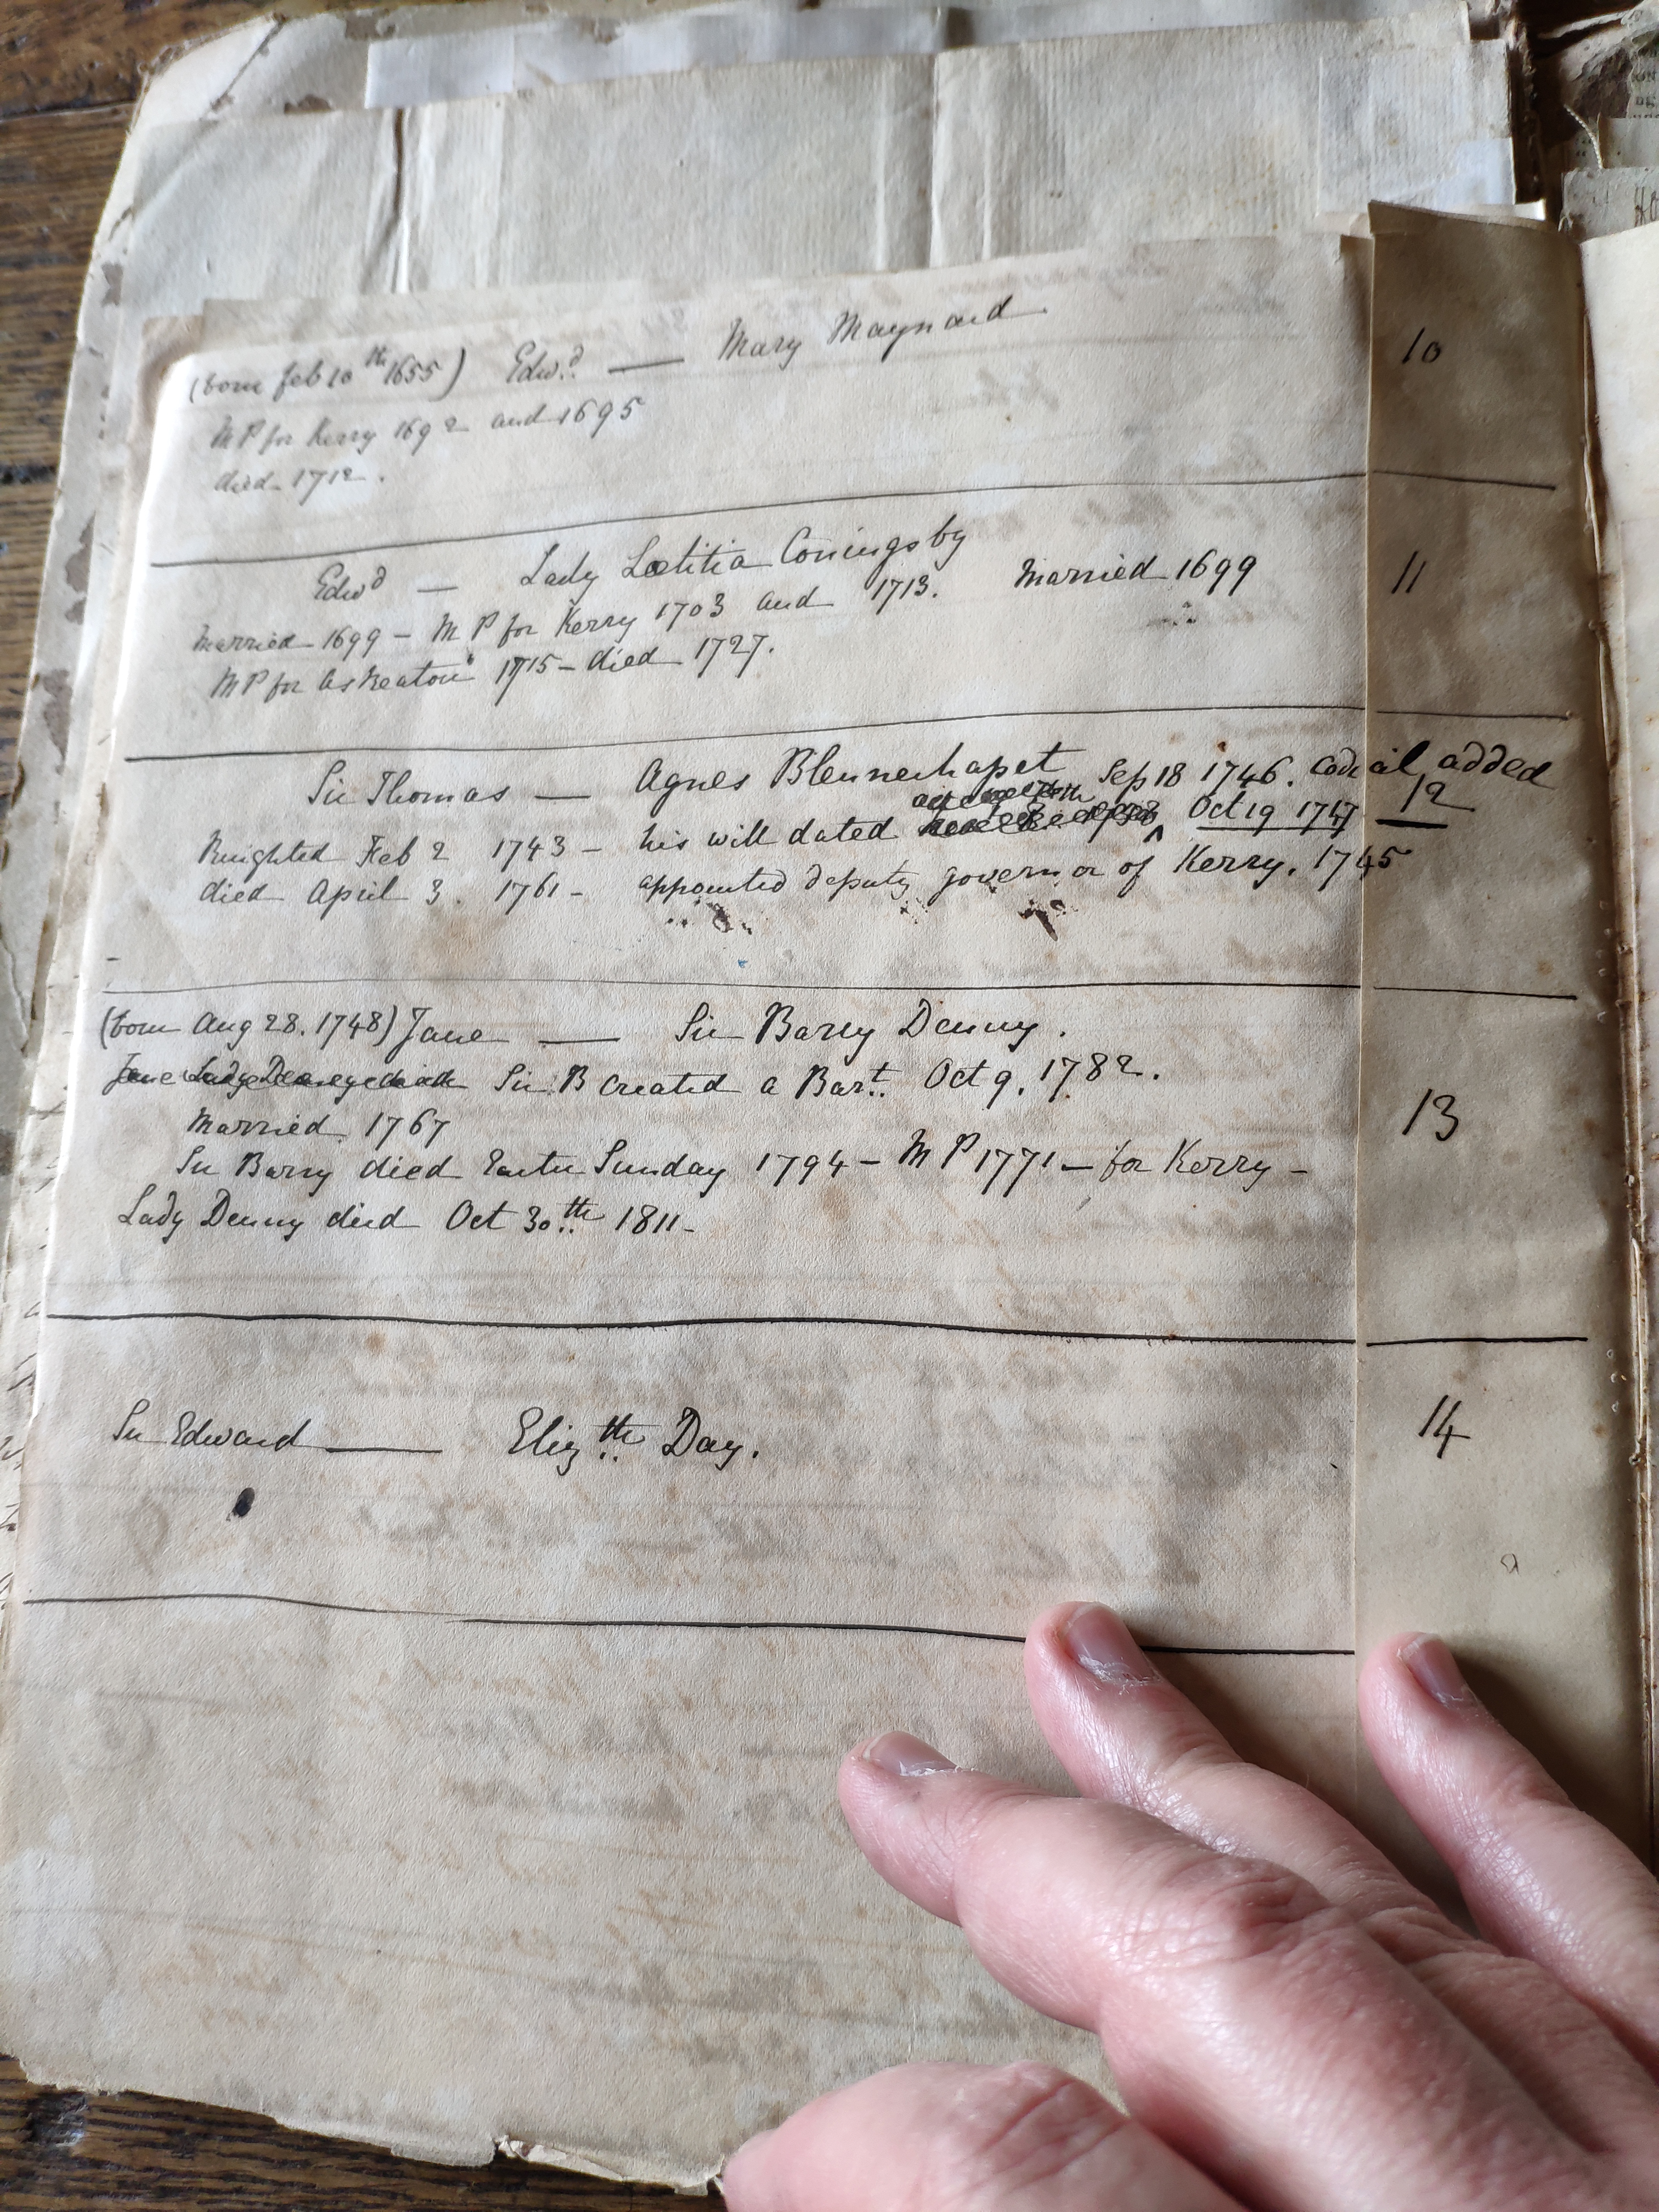 (born Feb 10th 1655) Edwd. — Mary Maynard 10
M P for Kerry 1692 and 1695
died 1712.
Edwd — Lady Lœtitia Coningsby Married 1699 11
Married 1699 – M P for Kerry 1703 and 1713.
M P for Askeaton 1715 – died 1727.
Sir Thomas — Agnes Blennerhasset Sep 18 1746. Codicil added 12
Knighted Feb 2 1743 – his will dated ^ Oct 19 1747
died April 3. 1761 – appointed deputy governor of Kerry. 1745
(born Aug 28. 1748) Jane — Sir Barry Denny. 13
Jane Lady Denny died Sir B created a Bart. Oct 9. 1782.
Married 1767
Sir Barry died Easter Sunday 1794 – M P 1771 – for Kerry –
Lady Denny died Oct 30th 1811 –
Sir Edward — Elizth Day. 14